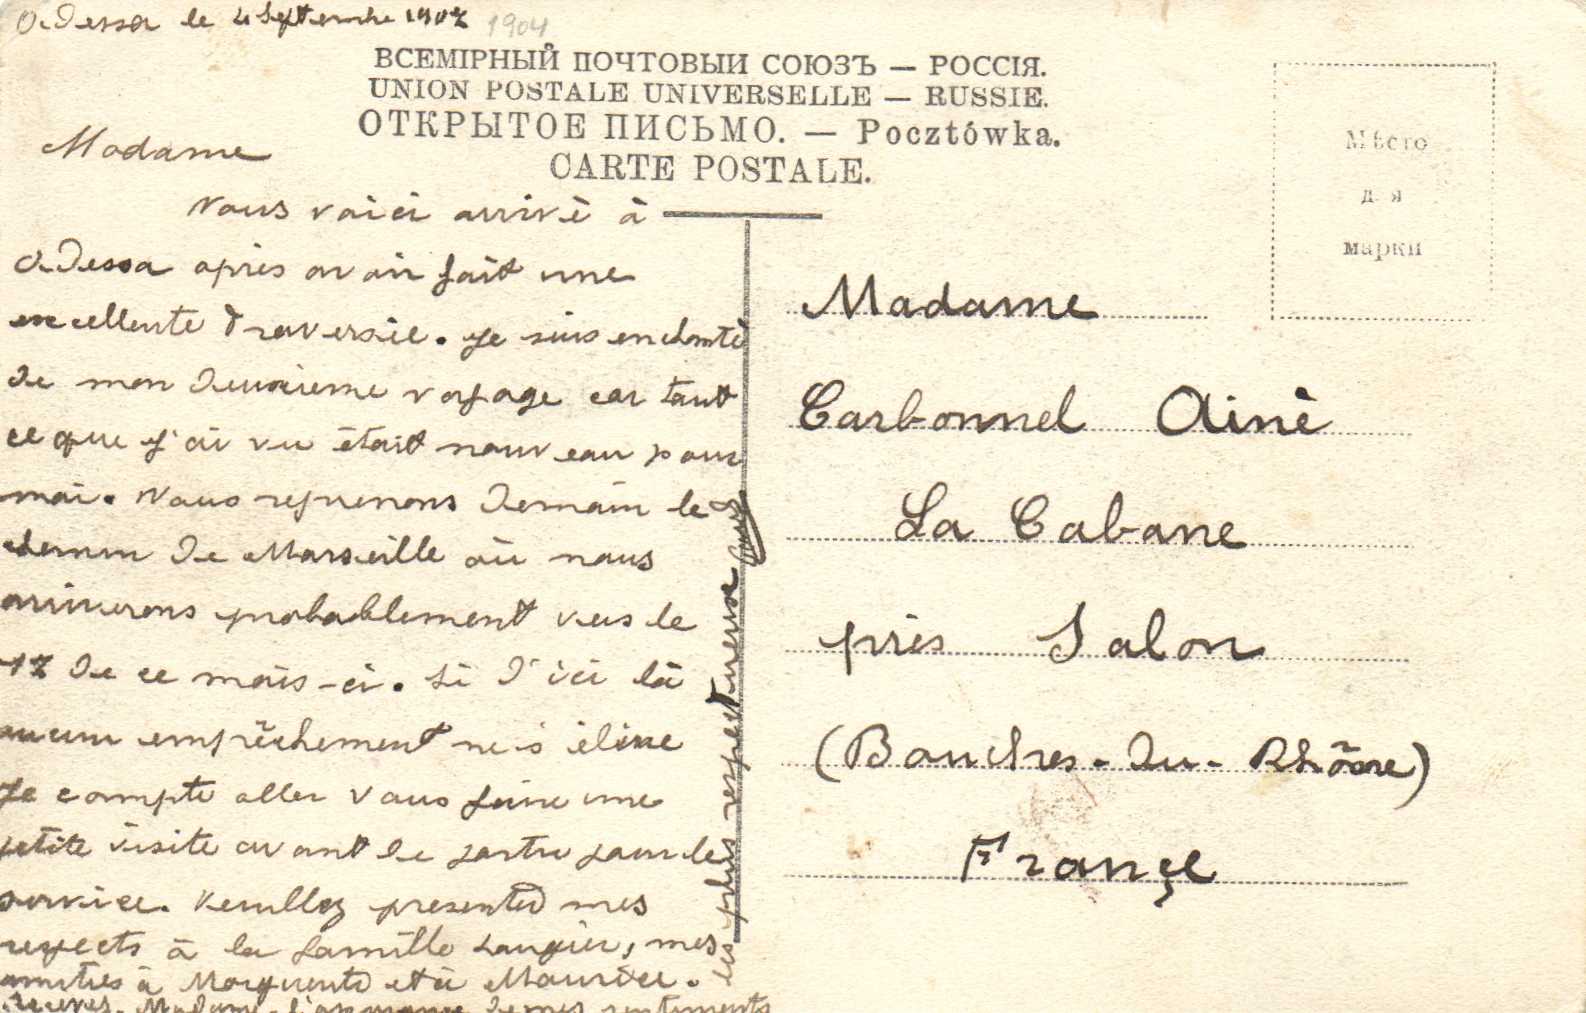 Odessa le 4 Septembre 1907
1904
ВСЕМІРНЫЙ ПОЧТОВЫИ СОЮЗЪ — РОССІЯ.
UNION POSTALE UNIVERSELLE — RUSSIE.
ОТКРЫТОЕ ПИСЬМО. — Pocztówka.
CARTE POSTALE.
Мѣсто
д я
марки
Madame
Nous voici arrivé à
Odessa après avoir fait une
excellente traversée. Je suis enchanté
de mon deuxième voyage car tout
ce que j'ai vu était nouveau pour
moi. Nous reprenons demain le
chemin de Marseille où nous
arriverons probablement vers le
17 de ce mois-ci. Si d'ici là
aucun empêchement ne s'élève
Je compte aller vous faire une
petite visite avant de partir pour le
service. Veuillez presenter mes
respects à la famille Laugier, mes
amitiés à Marguerite et à Maurice.
Recevez, Madame, l'assurance de mes sentiments
les plus respectueux
Madame
Carbonnel Ainè
La Cabane
près Salon
(Bouches-du-Rhône)
Françe